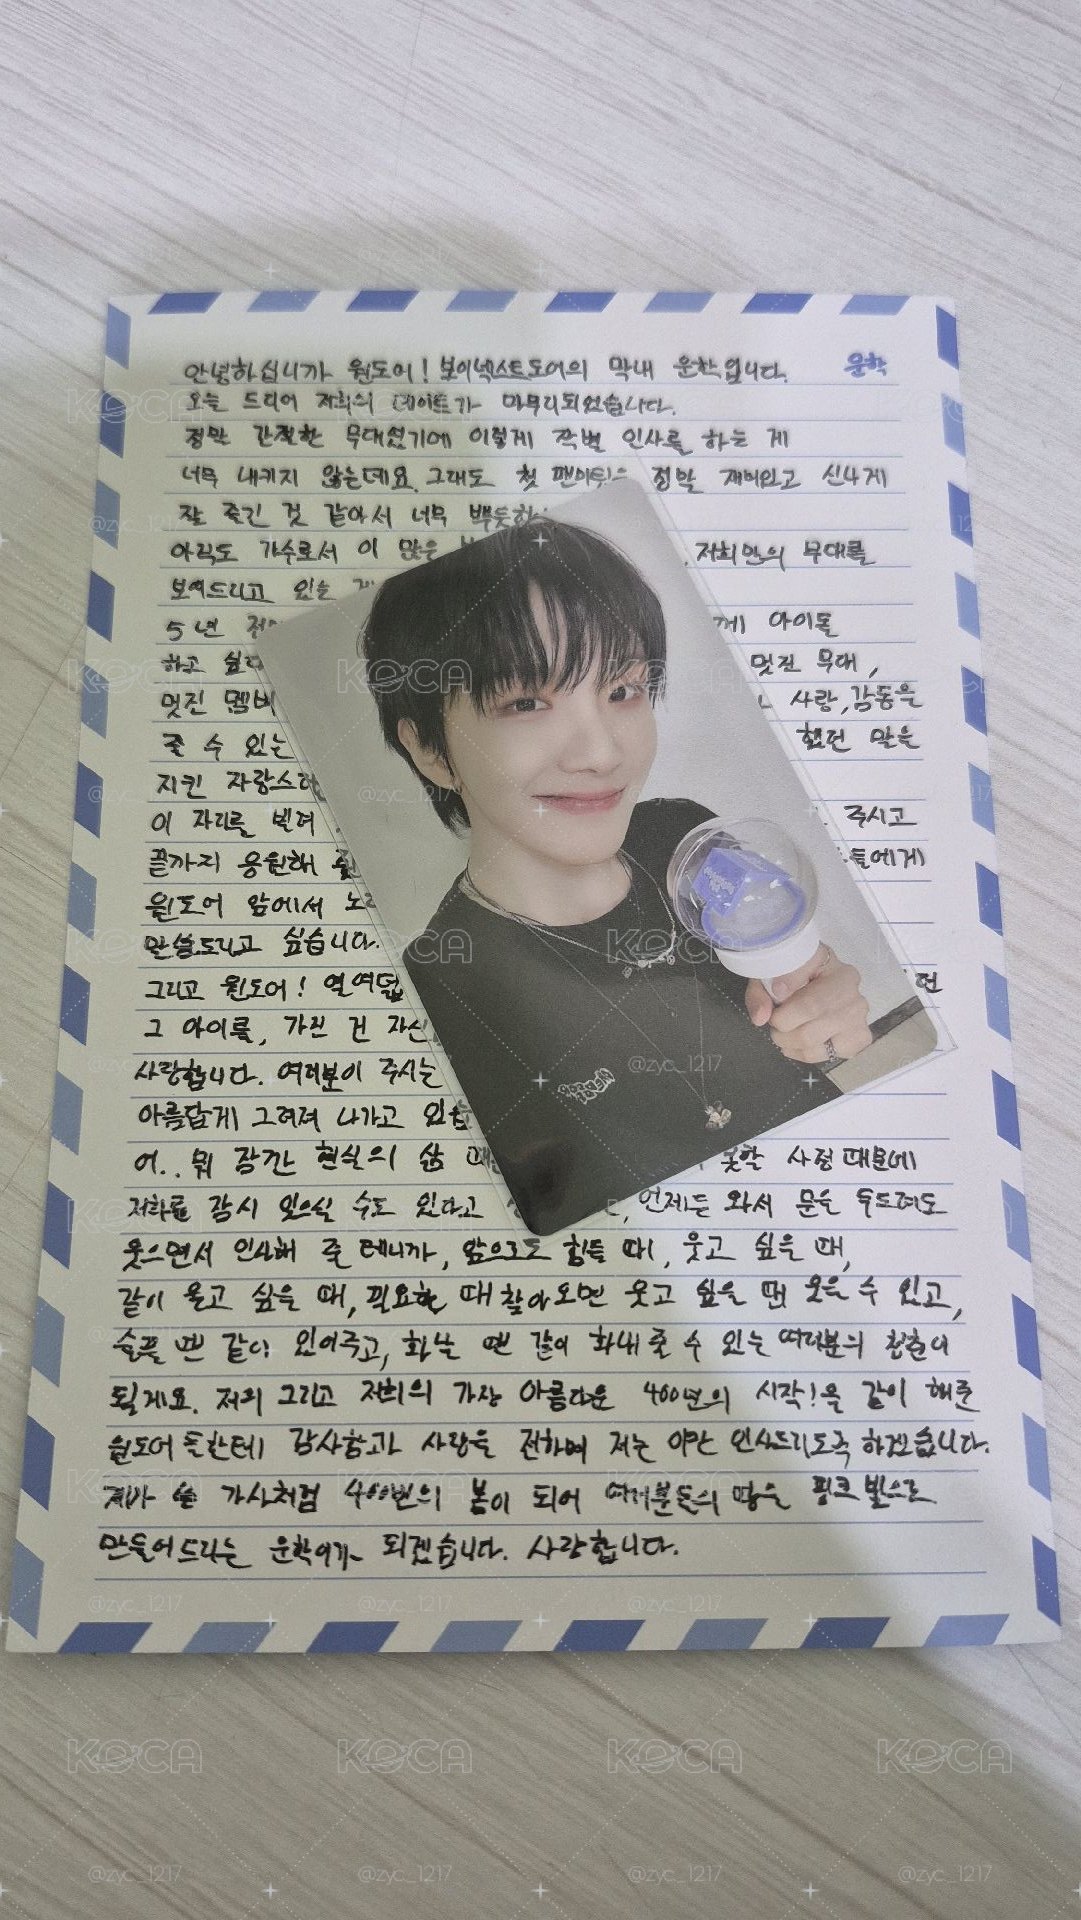 안녕하십니까 원도어! 보이넥스트도어의 막내 운학입니다. 운학
오늘 드디어 저희의 데이트가 마무리되었습니다.
정말 간절한 무대였기에 이렇게 작별 인사를 하는 게
너무 내키지 않는데요. 그래도 첫 팬미팅을 정말 재미있고 신나게
잘 즐긴 것 같아서 너무 뿌듯한
아직도 가수로서 이 많은 저희만의 무대를
보여드리고 있는
5년 전 께 아이돌
하고 싶다 멋진 무대,
멋진 멤버 사랑, 감동을
줄 수 있는 했던 말을
지킨 자랑스러
이 자리를 빌려 주시고
끝까지 응원해 들에게
원도어 앞에서 노래
말씀드리고 싶습니다.
그리고 원도어! 열여덟
그 아이를, 가진 건 자신
사랑합니다. 여러분이 주시는
아름답게 그려져 나가고 있습
어.. 뭐 잠깐 현실의 삶 때문 못할 사정 때문에
저희를 잠시 잊으실 수도 있다고 언제든 와서 문을 두드려도
웃으면서 인사해 줄 테니까, 앞으로도 힘들 때, 웃고 싶을 때,
같이 울고 싶을 때, 필요할 때 찾아오면 웃고 싶을 땐 웃을 수 있고,
슬플 땐 같이 있어주고, 화날 땐 같이 화내 줄 수 있는 여러분의 청춘이
될게요. 저의 그리고 저희의 가장 아름다운 400년의 시작!을 같이 해준
원도어 분한테 감사함과 사랑을 전하며 저는 이만 인사드리도록 하겠습니다.
제가 쓴 가사처럼 400번의 봄이 되어 여러분들의 맘을 핑크빛으로
만들어드리는 운학이가 되겠습니다. 사랑합니다.
KOCA
@zyc_1217